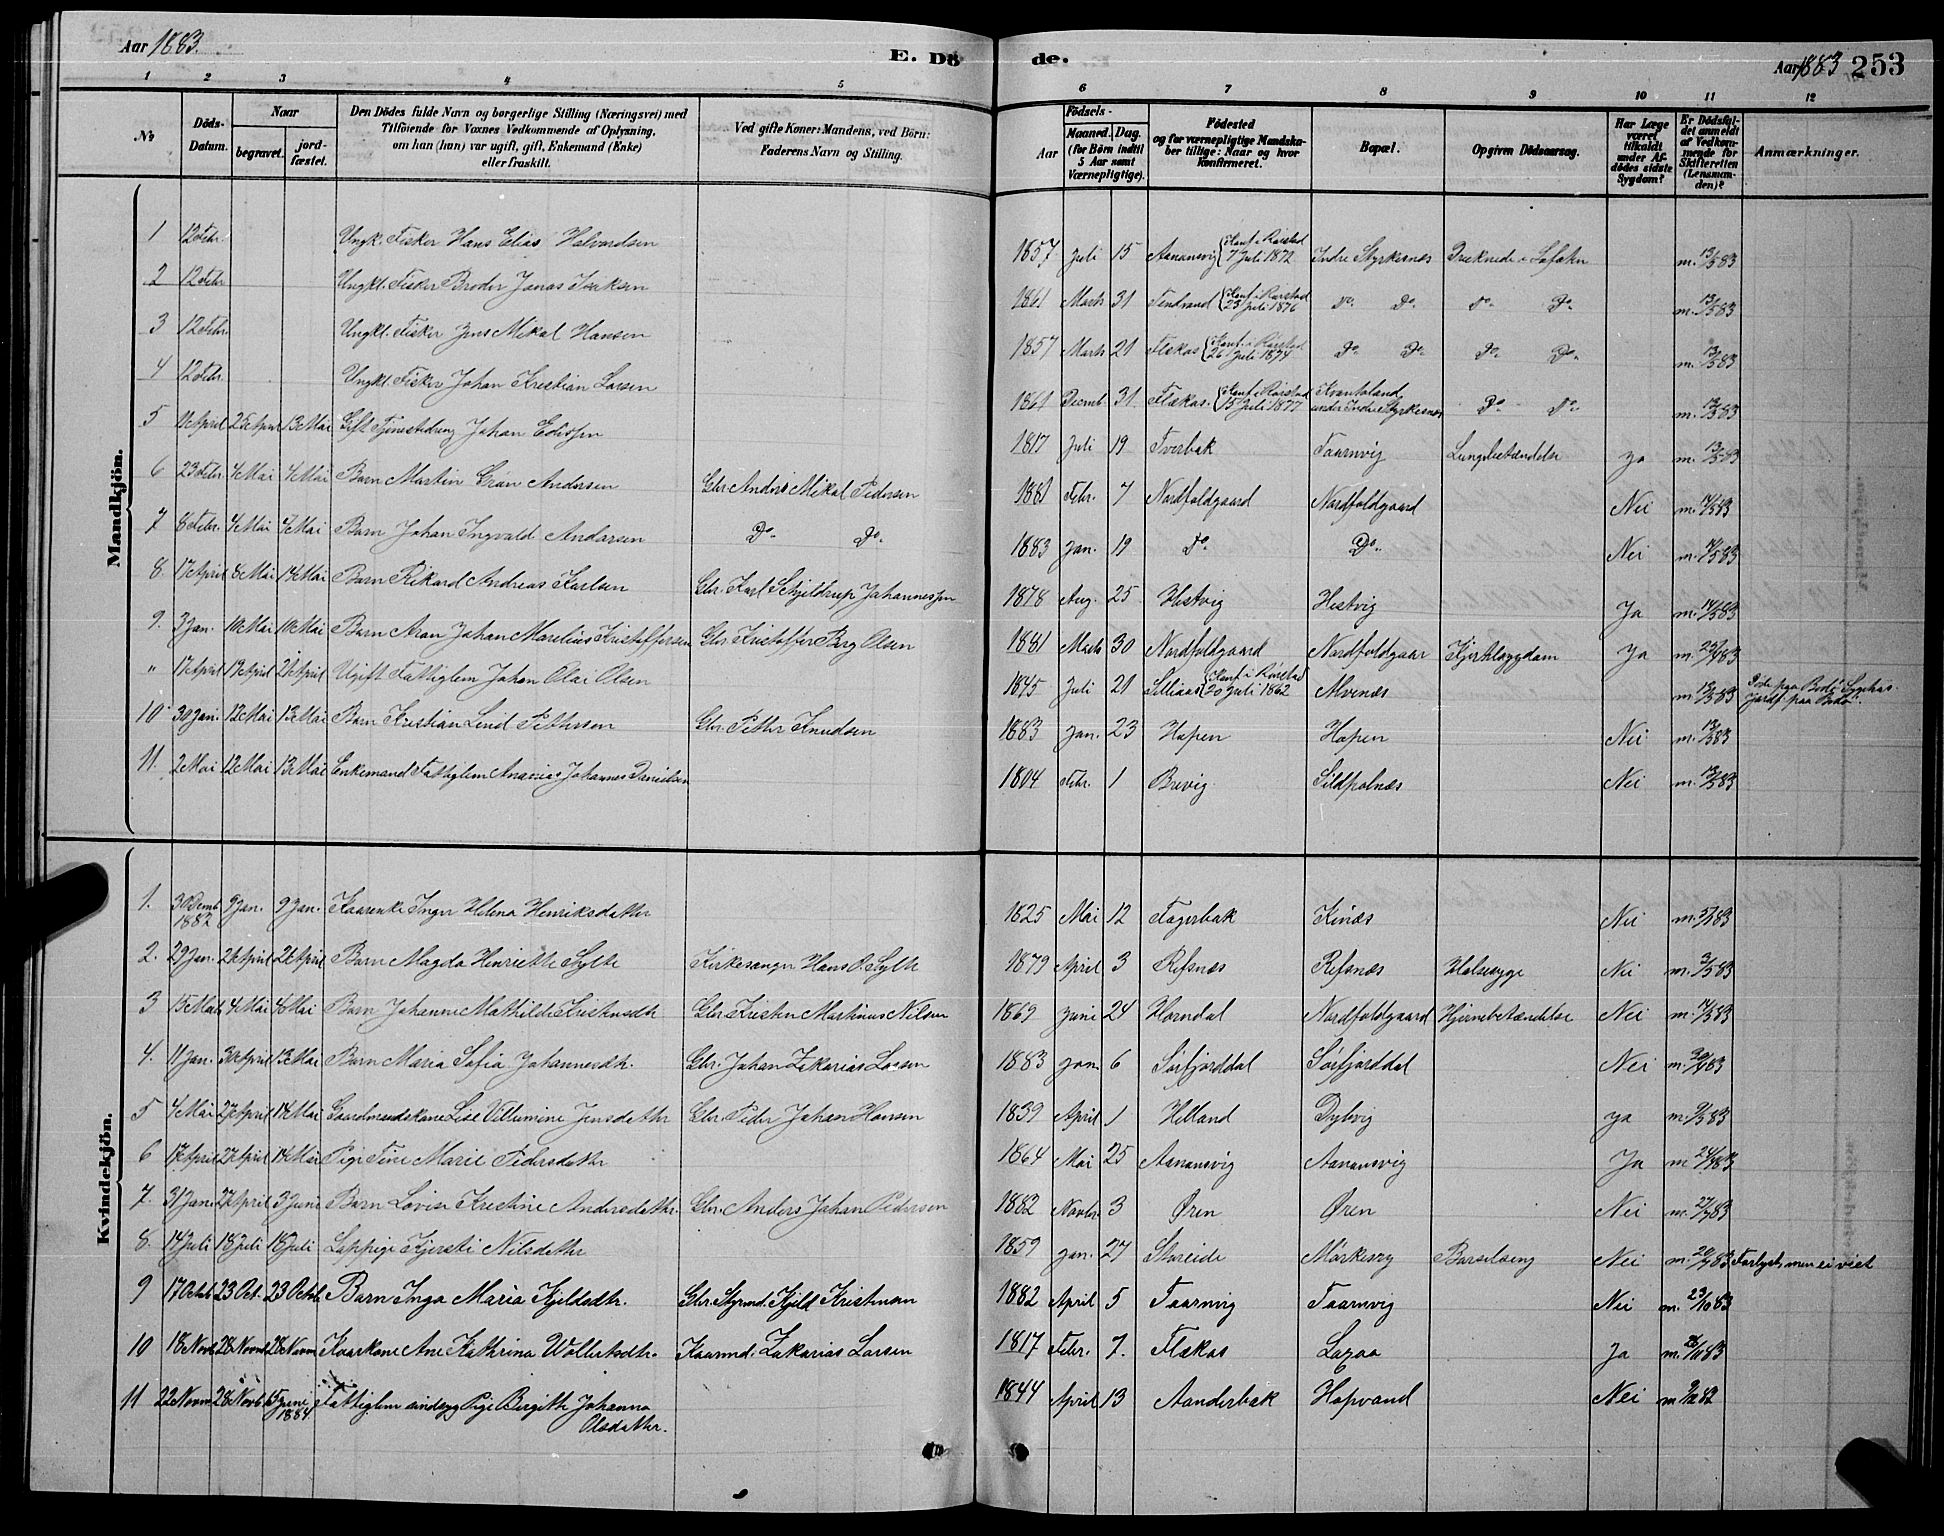 Aar 1883.
E. Dö
de.
Aar 1883 253
1 2 3 4 5 6 7 8 9 10 11 12
No
Döds-Datum.
Naar
begravet.
jord-fæstet.
Den Dödes fulde Navn og borgerlige Stilling (Næringsvei) med
Tilföiende for Voxnes Vedkommende af Oplysning,
om han (hun) var ugift, gift, Enkemand (Enke)
eller fraskilt.
Ved gifte Koner: Mandens, ved Börn:
Faderens Navn og Stilling.
Födsels-
Aar
Maaned. Dag.
(for Börn indtil
5 Aar samt
Værnepligtige).
Födested
og for værnepligtige Mandska-
ber tillige: Naar og hvor
konfirmeret.
Bopæl.
Opgiven Dödsaarsag.
Har Læge
været
tilkaldt
under Af-
dödes sidste
Sygdom?
Er Dödsfal-
det anmeldt
af Vedkom-
mende for
Skifteretten
(Lensman-
den)?
Anmærkninger.
Mandkjön.
1 12 Febr. Ungk. Fisker Hans Elias Halvordsen 1857 Juli 15 Aanansvig Konf. i Rørstad 7 Juli 1872 Indre Styrkesnæs Druknede i Lofoten m. 13/5 83
2 12 Febr Ungkl. Fisker Broder Jonas Isaksen 1861 Marts 31 Konf. i Rørstad 23 Juli 1876 Do. Do. Do. Do. m. 13/5 83
3 12 Febr. Ungkl. Fisker Jens Mikal Hansen 1857 Marts 21 Flækas Konf. i Rørstad 26 Juli 1874 Do. Do. Do. Do. m. 13/5 83
4 12 Febr. Ungkl. Fisker Johan Kristian Larsen 1861 Decemb. 31. Flækas. Konf. i Rørstad 15 Juli 1877 under Indre Styrkesnæs Do. Do. m. 13/5 83
5 April 25 April 13 Mai Gift Tjenestedreng Johan 1817 Juli 19 Tverbak Taarnvig Lungebetændelse Ja m. 13/5 83
6 23 Febr. 4 Mai 4 Mai Barn Martin Gran Andersen Gbr. Anders Mikal Pedersen 1881 Febr. 7 Nordfoldgaard Nordfoldgaard Nei m. 14/5 83
7 8 Febr. 4 Mai 4 Mai Barn Johan Ingvald Andersen Do. Do. 1883 Jan. 19 Do. Do. Nei m. 14/5 83
8. 17 April 8 Mai 14 Mai Barn Rikard Andreas Karlsen Gbr. Karl Schjeldrup Johannessen 1878 Aug. 25 Hestvig Hestvig Ja m. 14/5 83
9. 3 Jan. 10 Mai 10 Mai Barn Aron Johan Marelius Kristoffersen Gbr. Kristoffer Berg Olsen 1881 Marts 30 Nordfoldgaard Nordfoldgaar Kjertelsygdom Ja m. 83
" 17 April 19 April 21 April Ugift Fattiglem Johan Olai Olsen 1845 Juli 21 Konf. i Rørstad 20 Juli 1862 Alvenes m. 13/5 83 Døde paa Bodø Sygehus. Jordf. paa Bodø.
10 30 Jan. 12 Mai 13 Mai Barn Kristian Lind Pettersen Gbr. Petter Knudsen 1883 Jan. 23 Hopen Hopen Nei m. 13/5 83
11. 2 Mai 12 Mai 13 Mai Enkemand Fattiglem Ananias Johannes Danielsen 1804 Febr. 1 Brevig Sildpolnæs Nei m. 13/5 83
Kvindekjön.
1. 30 Decmb 1882 9 Jan. 9 Jan. Inger Helena Henriksdatter 1825 Mai 12 Fagerbak Kinæs Nei m. 83
2. 29 Jan. 21 April 21 April Barn Magda Henriette Sylte Kirkesanger Hans P. Sylte 1879 April 3 Refsnæs Refsnæs Halssyge Nei m. 3/5 83
3 15 Marts 4 Mai 4 Mai Barn Johanne Mathilde Kristensdtr Gbr. Kristen Martinus Nilsen 1869 Juni 24 Horndal Nordfoldgaard Hjernebetændelse Nei m. 14/5 83
4. 11 Jan. 30 April 13 Mai Barn Maria Sofia Johannesdtr. Gbr. Johan Zakarias Larsen 1883 Jan 6 Sørfjorddal Sørfjorddal Nei m. 30/4 83
5 4 Mai 27 April 14 Mai Gaardmandskone Lise Villumine Jensdatter Gbr. Peder Johan Hansen 1839 April 1 Helland Dybvig Ja m. 9/5 83
6 17 April 27 April 14 Mai Pige Tine Marie Pedersdatter 1864 Mai 25 Aanansvig Aanansvig Ja m. 83
7. 31 Jan. 27 April 3 Juni Barn Lovise Kristine Andersdatter. Gbr. Anders Johan Pedersen 1882 Novbr. 3 Øren Øren Nei m. 27/4 83
8. 14 Juli 18 Juli 18 Juli Lappige Kjersti Nilsdatter 1859 Jan. 27 Storeide Mørkesvig Barselseng Nei m. 20/7 83 Forlyst, men ei viet
9 17 Octob 23 Oct. 23 Octob. Barn Inga Maria Kjeldsdtr. Gbr. Styrmd. Kjeld Kristensen 1882 April 5 Taarnvig Taarnvig Nei m. 23/10 83
10 18 Novb 28 Novm 28 Novm Kaarkone Ane Kathrina Wollertsdtr. Kaarmd. Zakarias Larsen 1817 Febr. 7. Flækas Laxaa Ja m. 28/11 83
11 22 Novm 28 Novb 15 Juni 1884 Fattiglem sindsyg Pige Birgitte Johanna Olsdatter. 1844 April 13 Aanderbak Hopvand Nei m 83